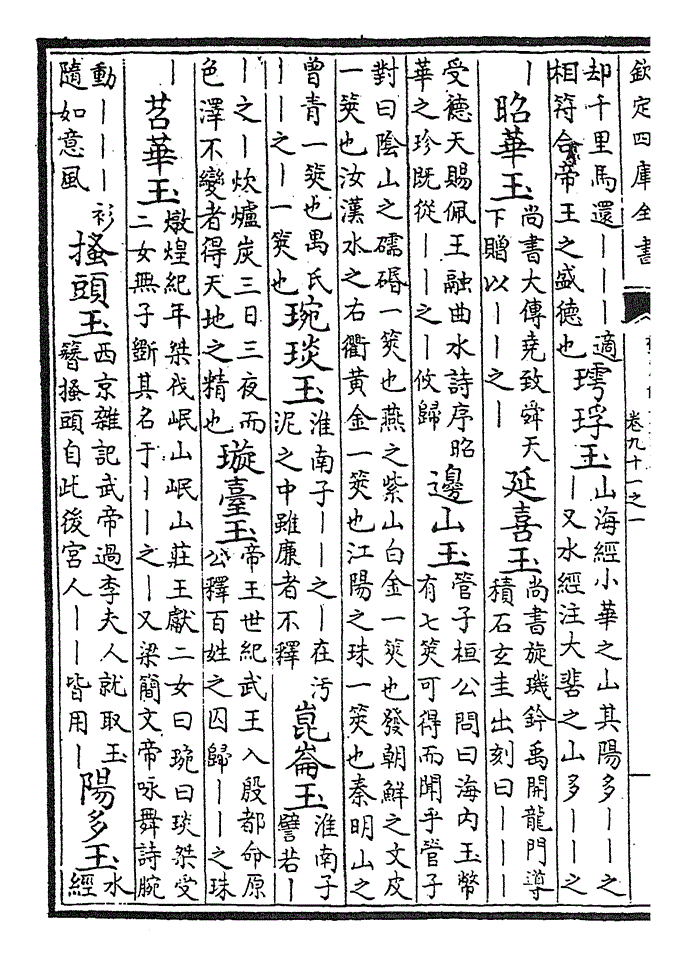 欽定四庫全書
卷九十一之一
却千里馬還丨丨丨適
相符合帝王之盛德也
㻬琈玉
山海經小華之山其陽多丨丨之
丨又水經注大之山多丨丨之
丨
昭華玉
尚書大傳堯致舜天
下贈以丨丨之丨
延喜玉
尚書旋璣鈐禹開龍門導
積石玄圭出刻曰丨丨丨
受德天賜佩王融曲水詩序昭
華之珍既從丨丨之丨攸歸
邊山玉
管子桓公問曰海内玉幣
有七筴可得而聞乎管子
對曰陰山之礝碈一筴也燕之紫山白金一筴也發朝鮮之文皮
一筴也汝漢水之右衢黄金一筴也江陽之珠一筴也秦明山之
曾青一筴也禺氏
丨丨之丨一筴也
琬琰玉
淮南子丨丨之丨在汚
泥之中雖廉者不釋
崑崙玉
淮南子
譬若丨
丨之丨炊爐炭三日三夜而
色澤不變者得天地之精也
璇臺玉
帝王世紀武王入殷都命原
公釋百姓之囚歸丨丨之珠
丨
苕華玉
燉煌紀年桀伐岷山岷山莊王獻二女曰琬曰琰桀受
二女無子斷其名于丨丨之丨又梁簡文帝咏舞詩腕
動丨丨丨衫
隨如意風
搔頭玉
西京雜記武帝過李夫人就取玉
簪搔頭自此後宮人丨丨皆用丨
陽多玉
水
經